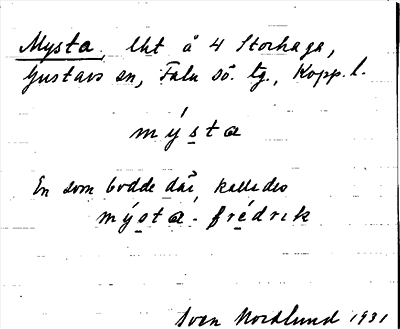 Mysta, lht å 4 Storhaga,
Gustavs sn, Falu sö. tg., Kopp. l.
mýsta
En som bodde där kallades
mýsta-frédrik
Sven Nordlund 1931